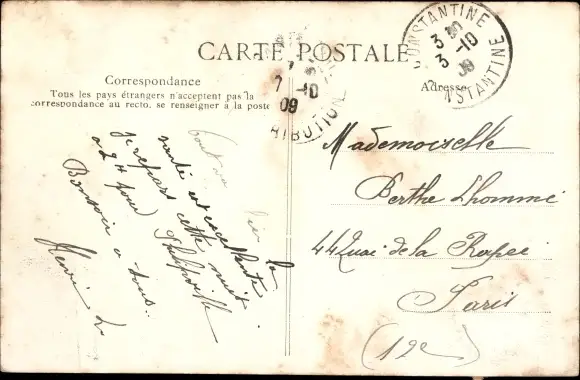 CARTE POSTALE
Correspondance
Tous les pays étrangers n'acceptent pas la
correspondance au recto. se renseigner à la poste
Adresse
CONSTANTINE
3 30
3 -10
09
CONSTANTINE
7 -10
09
RIBUTION
Tout va bien la
santé est excellente
je repars cette nuit
à 2 H pour Philippeville
Bonsoir à tous.
Henri L
Mademoiselle
Berthe Lhomme
44 Quai de la Rapée
Paris
(12e)